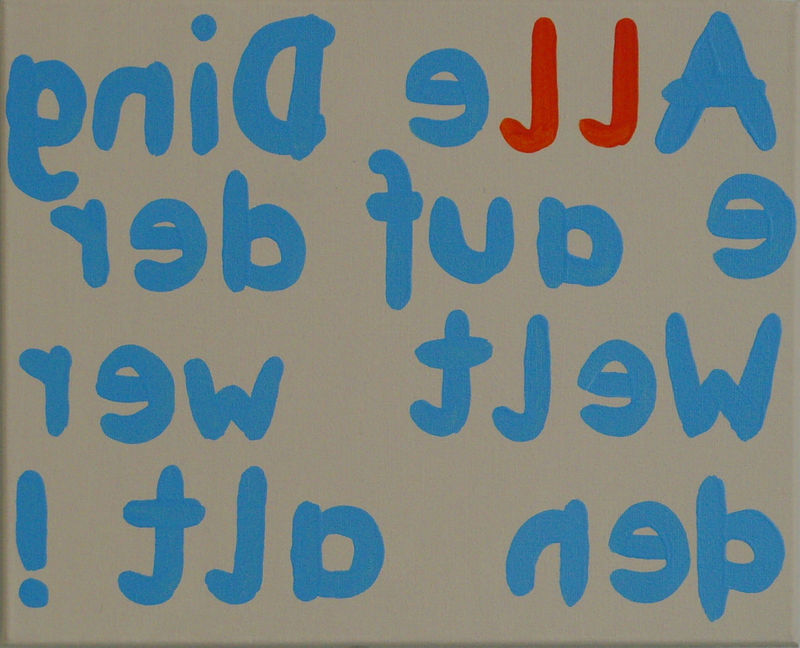 Alle Ding
e auf der
Welt wer
den alt !